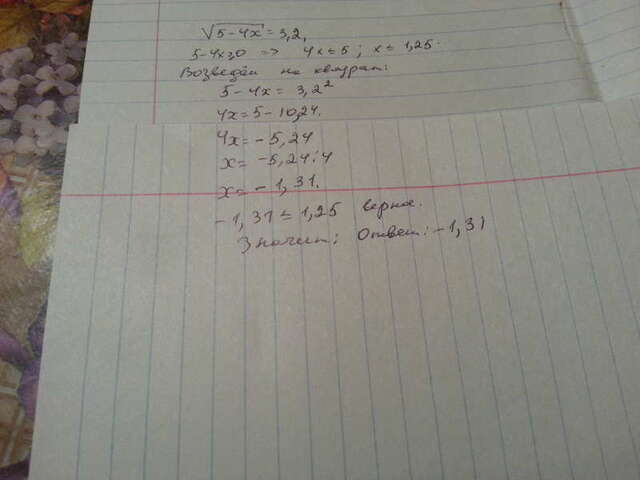 √5-4x = 3,2.
5-4x≥0 => 4x≤5; x≤1,25.
Возведём на квадрат:
5-4x = 3,2²
4x=5-10,24.
4x=-5,24
x=-5,24:4
x=-1,31.
-1,31≤1,25 верное.
Значит; Ответ: -1,31